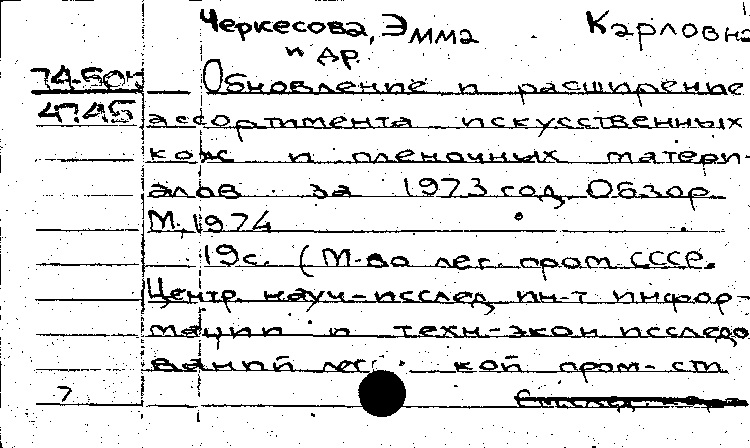 Черкесова, Эмма Карловна
и др.
74-504 Обновление и расширение
4745 ассортимента искусственных
кож и пленочных матери-
алов за 1973 год. Обзор.
М., 1974
19с. (М-во лег. пром. СССР.
Центр. науч-исслед. ин-т инфор-
мации и техн-экон исследо
ваний лег кой пром-сти
7